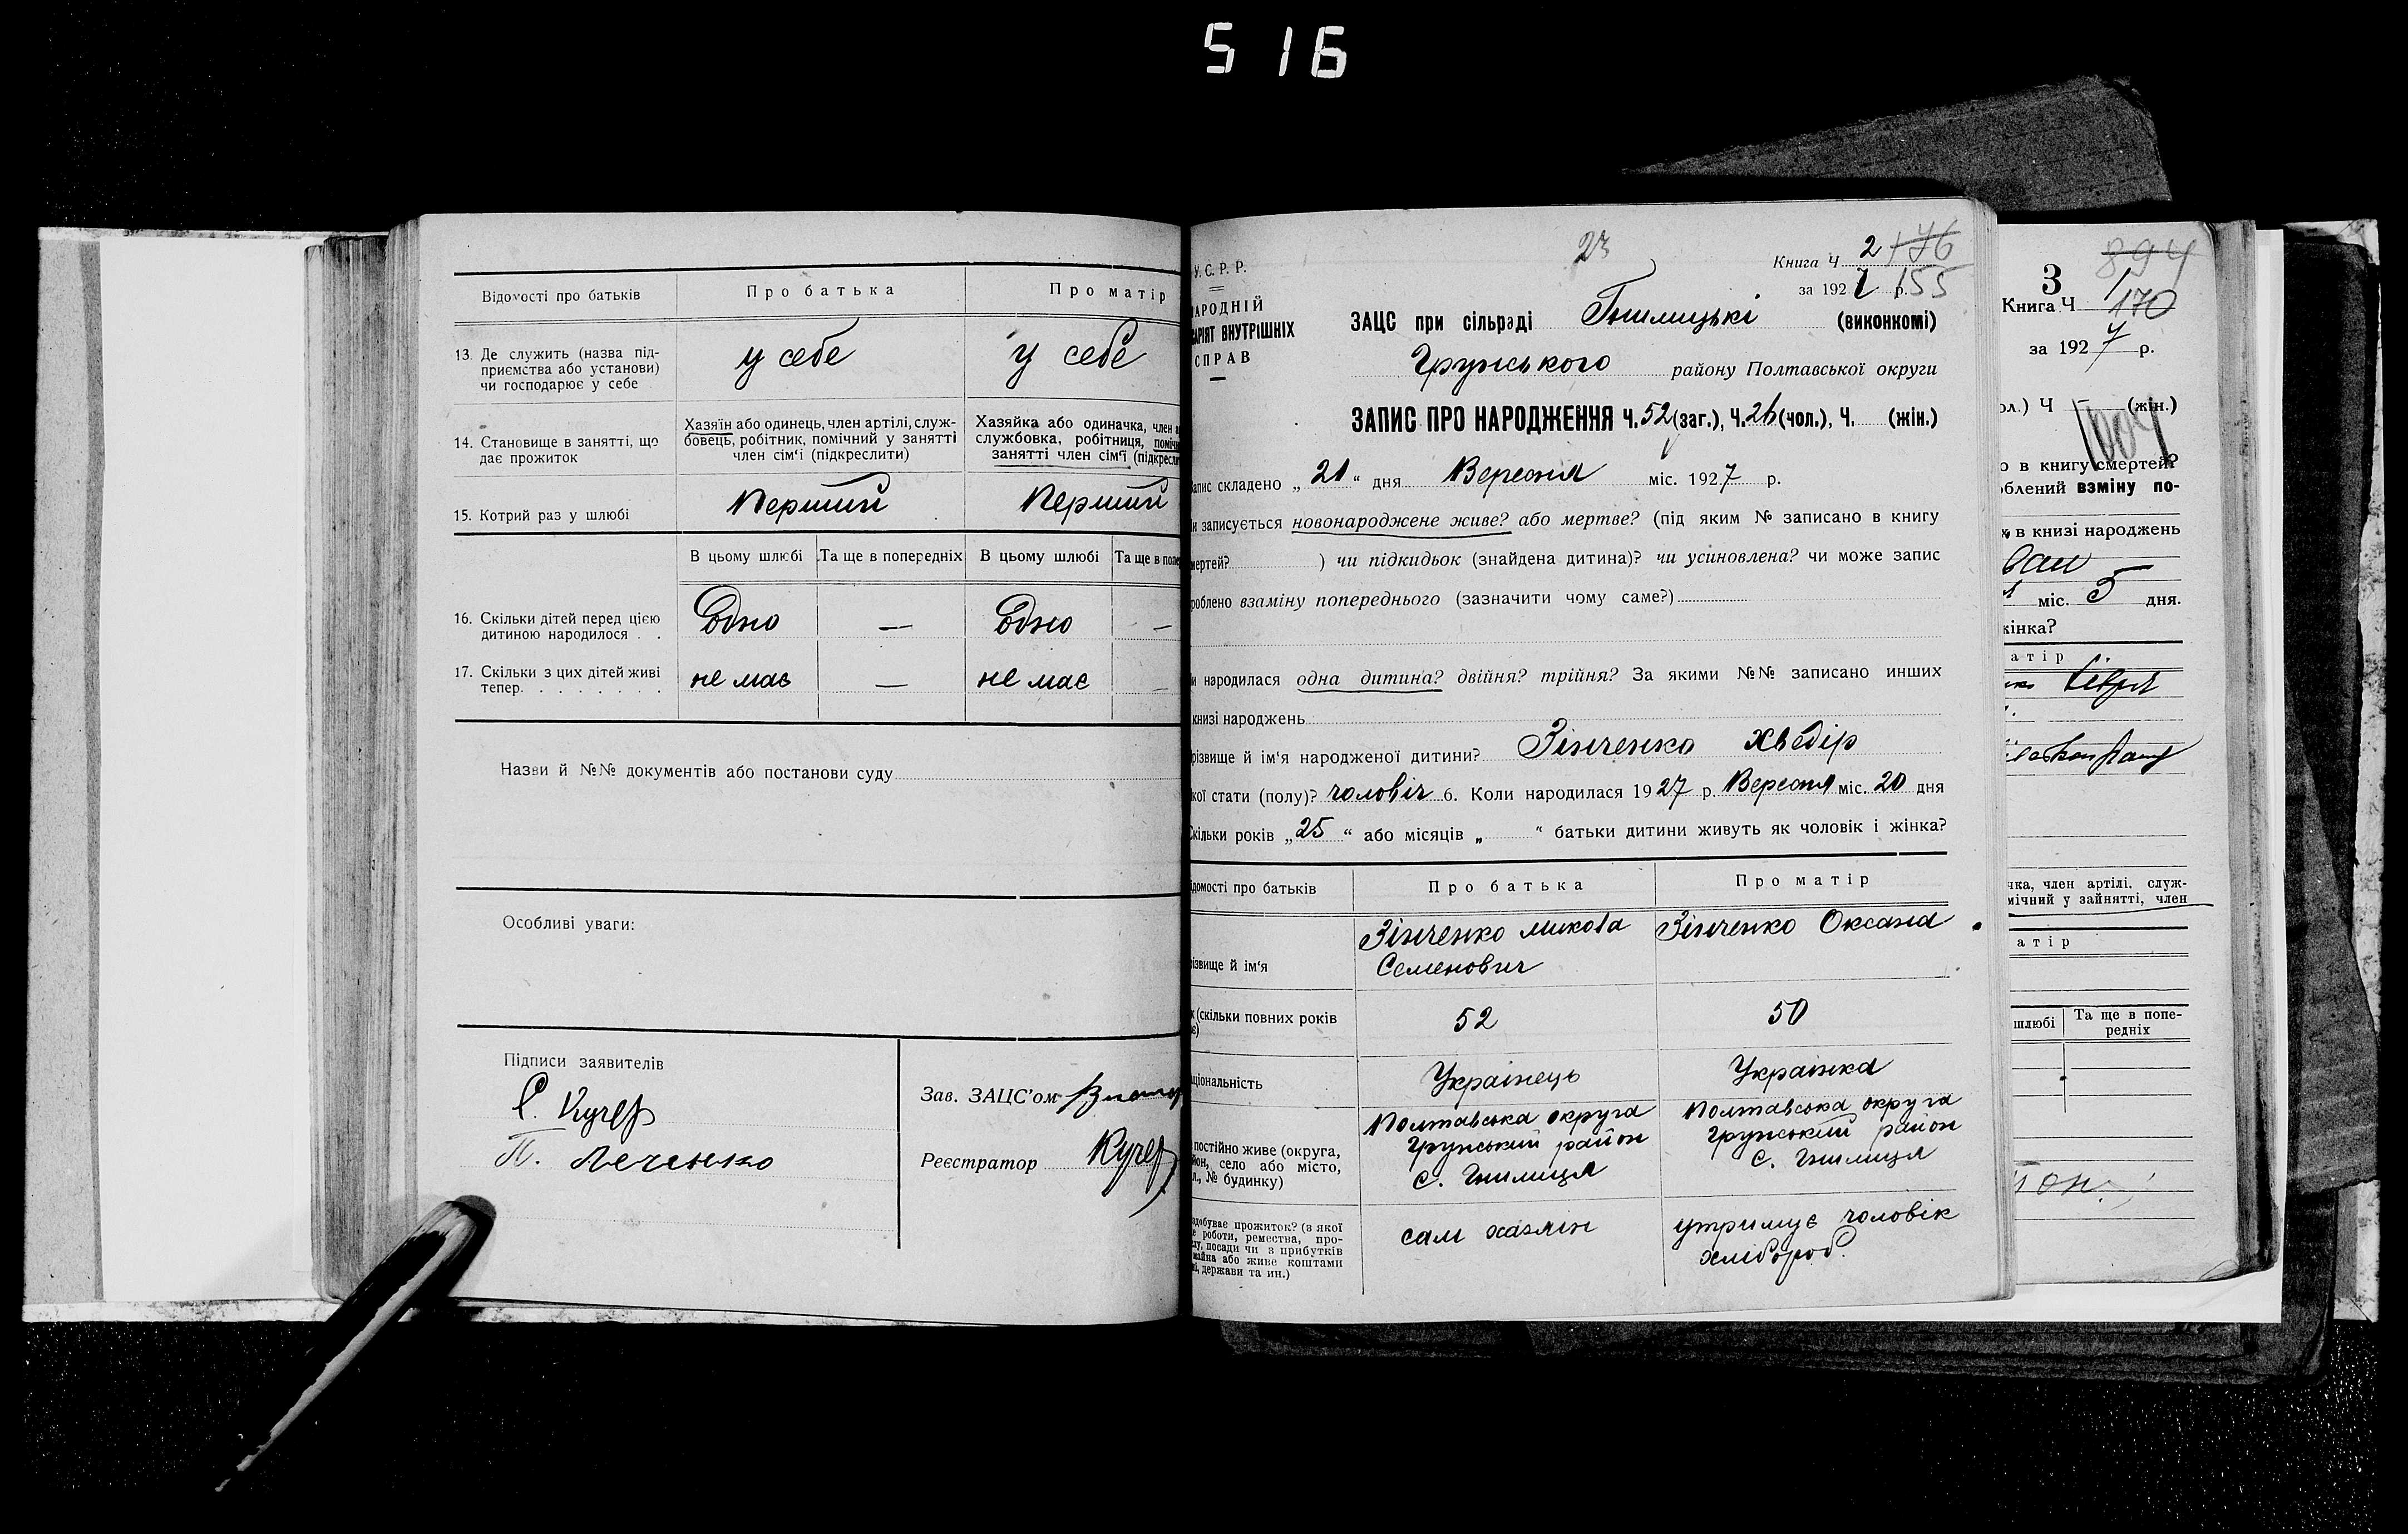 516
Відомості про батьків
Про батька
Про матір
13. Де служить (назва під-
приємства або установи)
чи господарює у себе
у себе
у себе
14. Становище в занятті, що
дає прожиток
Хазяїн або одинець, член артілі, служ-
бовець, робітник, помічний у занятті
член сім'ї (підкреслити)
Хазяйка або одиначка, член
службовка, робітниця,
занятті член сім'ї
15. Котрий раз у шлюбі
Перший
Перший
В цьому шлюбі
Та ще в попередніх
В цьому шлюбі
Та ще в
16. Скільки дітей перед цією
дитиною народилося . .
Одно
—
Одно
—
17. Скільки з цих дітей живі
тепер. . . . . . . .
не має
—
не має
—
Назви й №№ документів або постанови суду
Особливі уваги:
Підписи заявителів
Є. Кучер
П. Леченко
Зав. ЗАЦС'ом
Реєстратор Кучер
23
У. С. Р. Р.
АРОДНІЙ
АРІЯТ ВНУТРІШНІХ
СПРАВ
Книга Ч 2 176
за 1927 р. 155
ЗАЦС при сільраді Гнилицькі (виконкомі)
Грунського району Полтавської округи
ЗАПИС ПРО НАРОДЖЕННЯ Ч. 52 (заг.), Ч. 26 (чол.), Ч. (жін.)
апис складено „21“ дня Вересня міс. 1927 р.
и записується новонароджене живе? або мертве? (під яким № записано в книгу
мертей? ) чи підкидьок (знайдена дитина)? чи усиновлена? чи може запис
роблено взаміну попереднього (зазначити чому саме?)
и народилася одна дитина? двійня? трійня? За якими №№ записано инших
книзі народжень
різвище й ім'я народженої дитини? Зінченко Хведір
кої стати (полу)? чоловіч 6. Коли народилася 1927 р. Вересня міс. 20 дня
Скільки років „25“ або місяців „ “ батьки дитини живуть як чоловік і жінка?
ідомості про батьків
Про батька
Про матір
різвище й ім'я
Зінченко Микола
Семенович
Зінченко Оксана
к (скільки повних років
52
50
ціональність
Українець
Українка
постійно живе (округа,
йон, село або місто,
л., № будинку)
Полтавська округа
Грунський район
с. Гнилиця
Полтавська округа
Грунський район
с. Гнилиця
здобуває прожиток? (з якої
е роботи, ремества, про-
ду, посади чи з прибутків
майна або живе коштами
і, держави та ин.)
сам хазяїн
утримує чоловік
хлібороб.
894
3
Книга Ч 1 170
за 1927 р.
ол.) Ч — (жін.)
1004
о в книгу смертей?
облений взміну по-
в книзі народжень
міс. 5 дня.
жінка?
атір
чка, член артілі, служ-
мічний у зайнятті, член
атір
шлюбі
Та ще в попе-
редніх